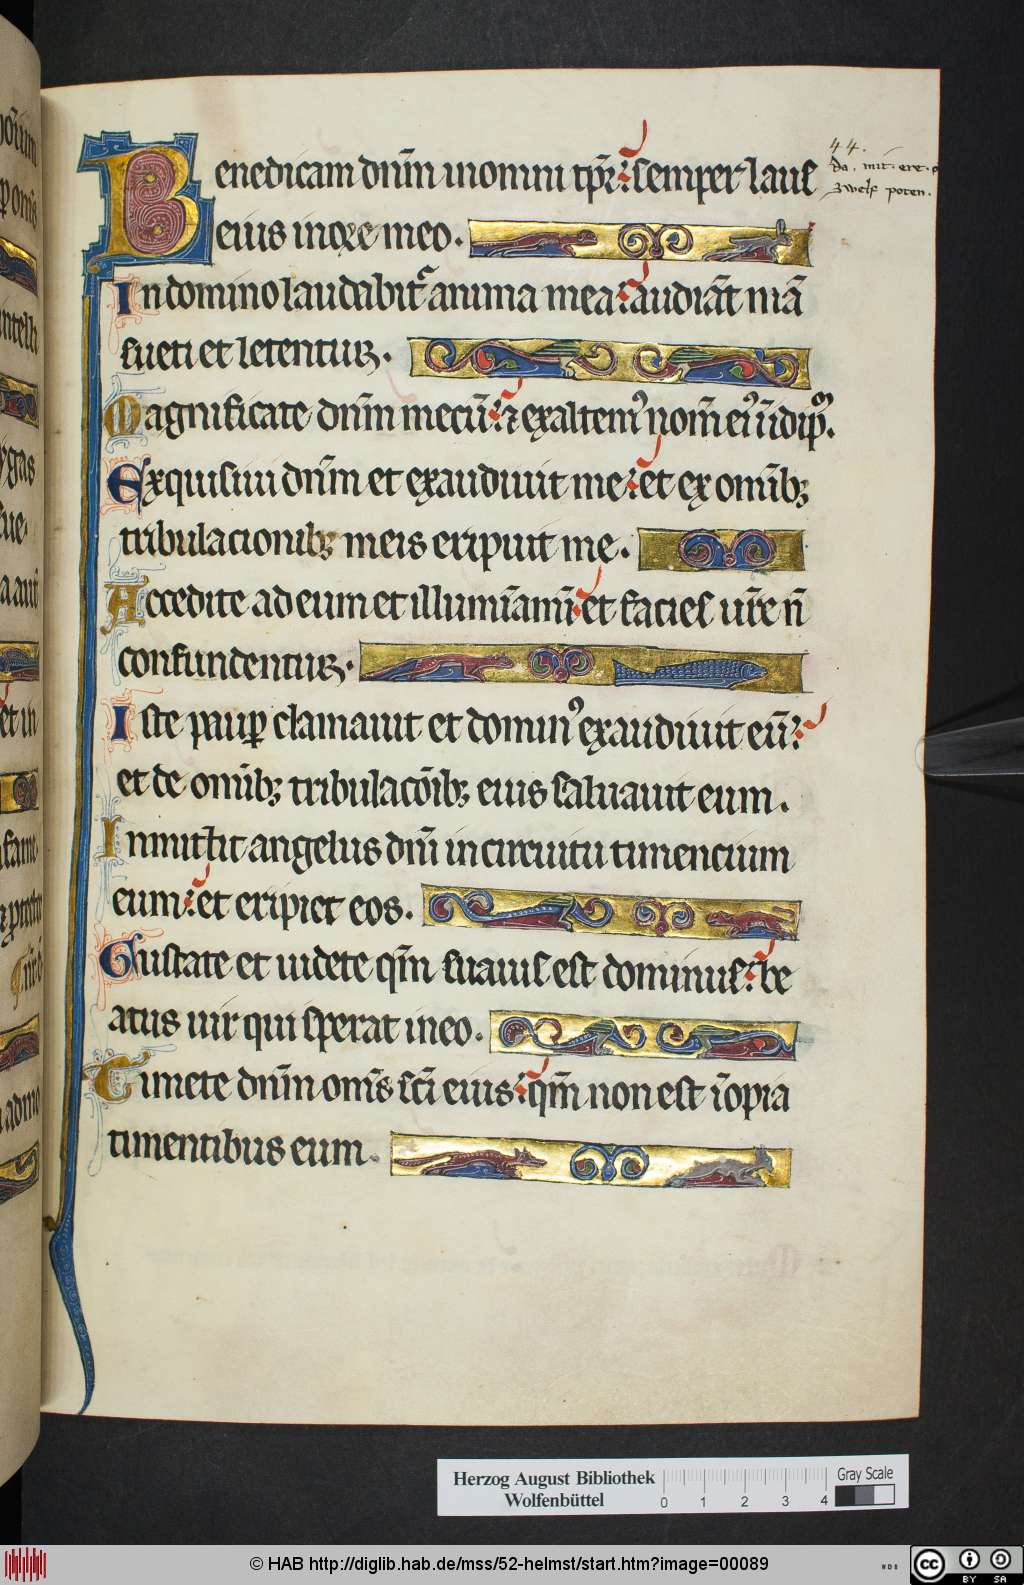 Benedicam dn̄m in omni tp̄r: semper laus
eius in ore meo.
In domino laudabit᷑ anima mea: audiāt mā
sueti et letentur.
Magnificate dn̄m mecū: ⁊ exaltemꝰ nom̄ eiꝰ ī idip̄m.
Exquisiui dn̄m et exaudiuit me: et ex omībꝫ
tribulacionibꝫ meis eripuit me.
Accedite ad eum et illumīamī: et facies ur̄e n̄
confundentur.
Iste paup̄ clamauit et dominꝰ exaudiuit eū:
et de omībꝫ tribulacōibꝫ eius saluauit eum.
Inmittit angelus dn̄i in circuitu timencium
eum: et eripiet eos.
Gustate et uidete qm̄ suauis est dominus: be
atus uir qui sperat in eo.
Timete dn̄m om̄s sc̄i eius: qm̄ non est īopia
timentibus eum.
44.
da. mit. ere.
zwelf poten.
ygas
et in
fame
Herzog August Bibliothek
Wolfenbüttel
0 1 2 3 4
Gray Scale
© HAB http://diglib.hab.de/mss/52-helmst/start.htm?image=00089
WDB
cc BY SA